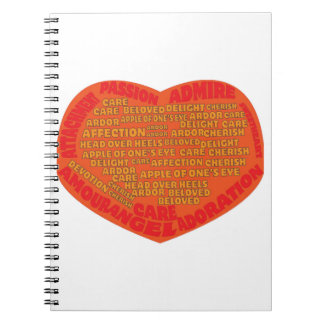 PASSION ADMIRE
ATTACHMENT
SWEETHEART
CARE BELOVED DELIGHT CHERISH
ARDOR APPLE OF ONE'S EYE ARDOR CARE
AFFECTION ARDOR DELIGHT CARE
CARE ARDOR CHERISH
HEAD OVER HEELS BELOVED DELIGHT
APPLE OF ONE'S EYE CARE DELIGHT
CARE AFFECTION CHERISH
DEVOTION
ARDOR CARE APPLE OF ONE'S EYE
CHERISH HEAD OVER HEELS
CARE ARDOR BELOVED
CHERISH BELOVED
AMOUR ANGEL CARE ADORATION